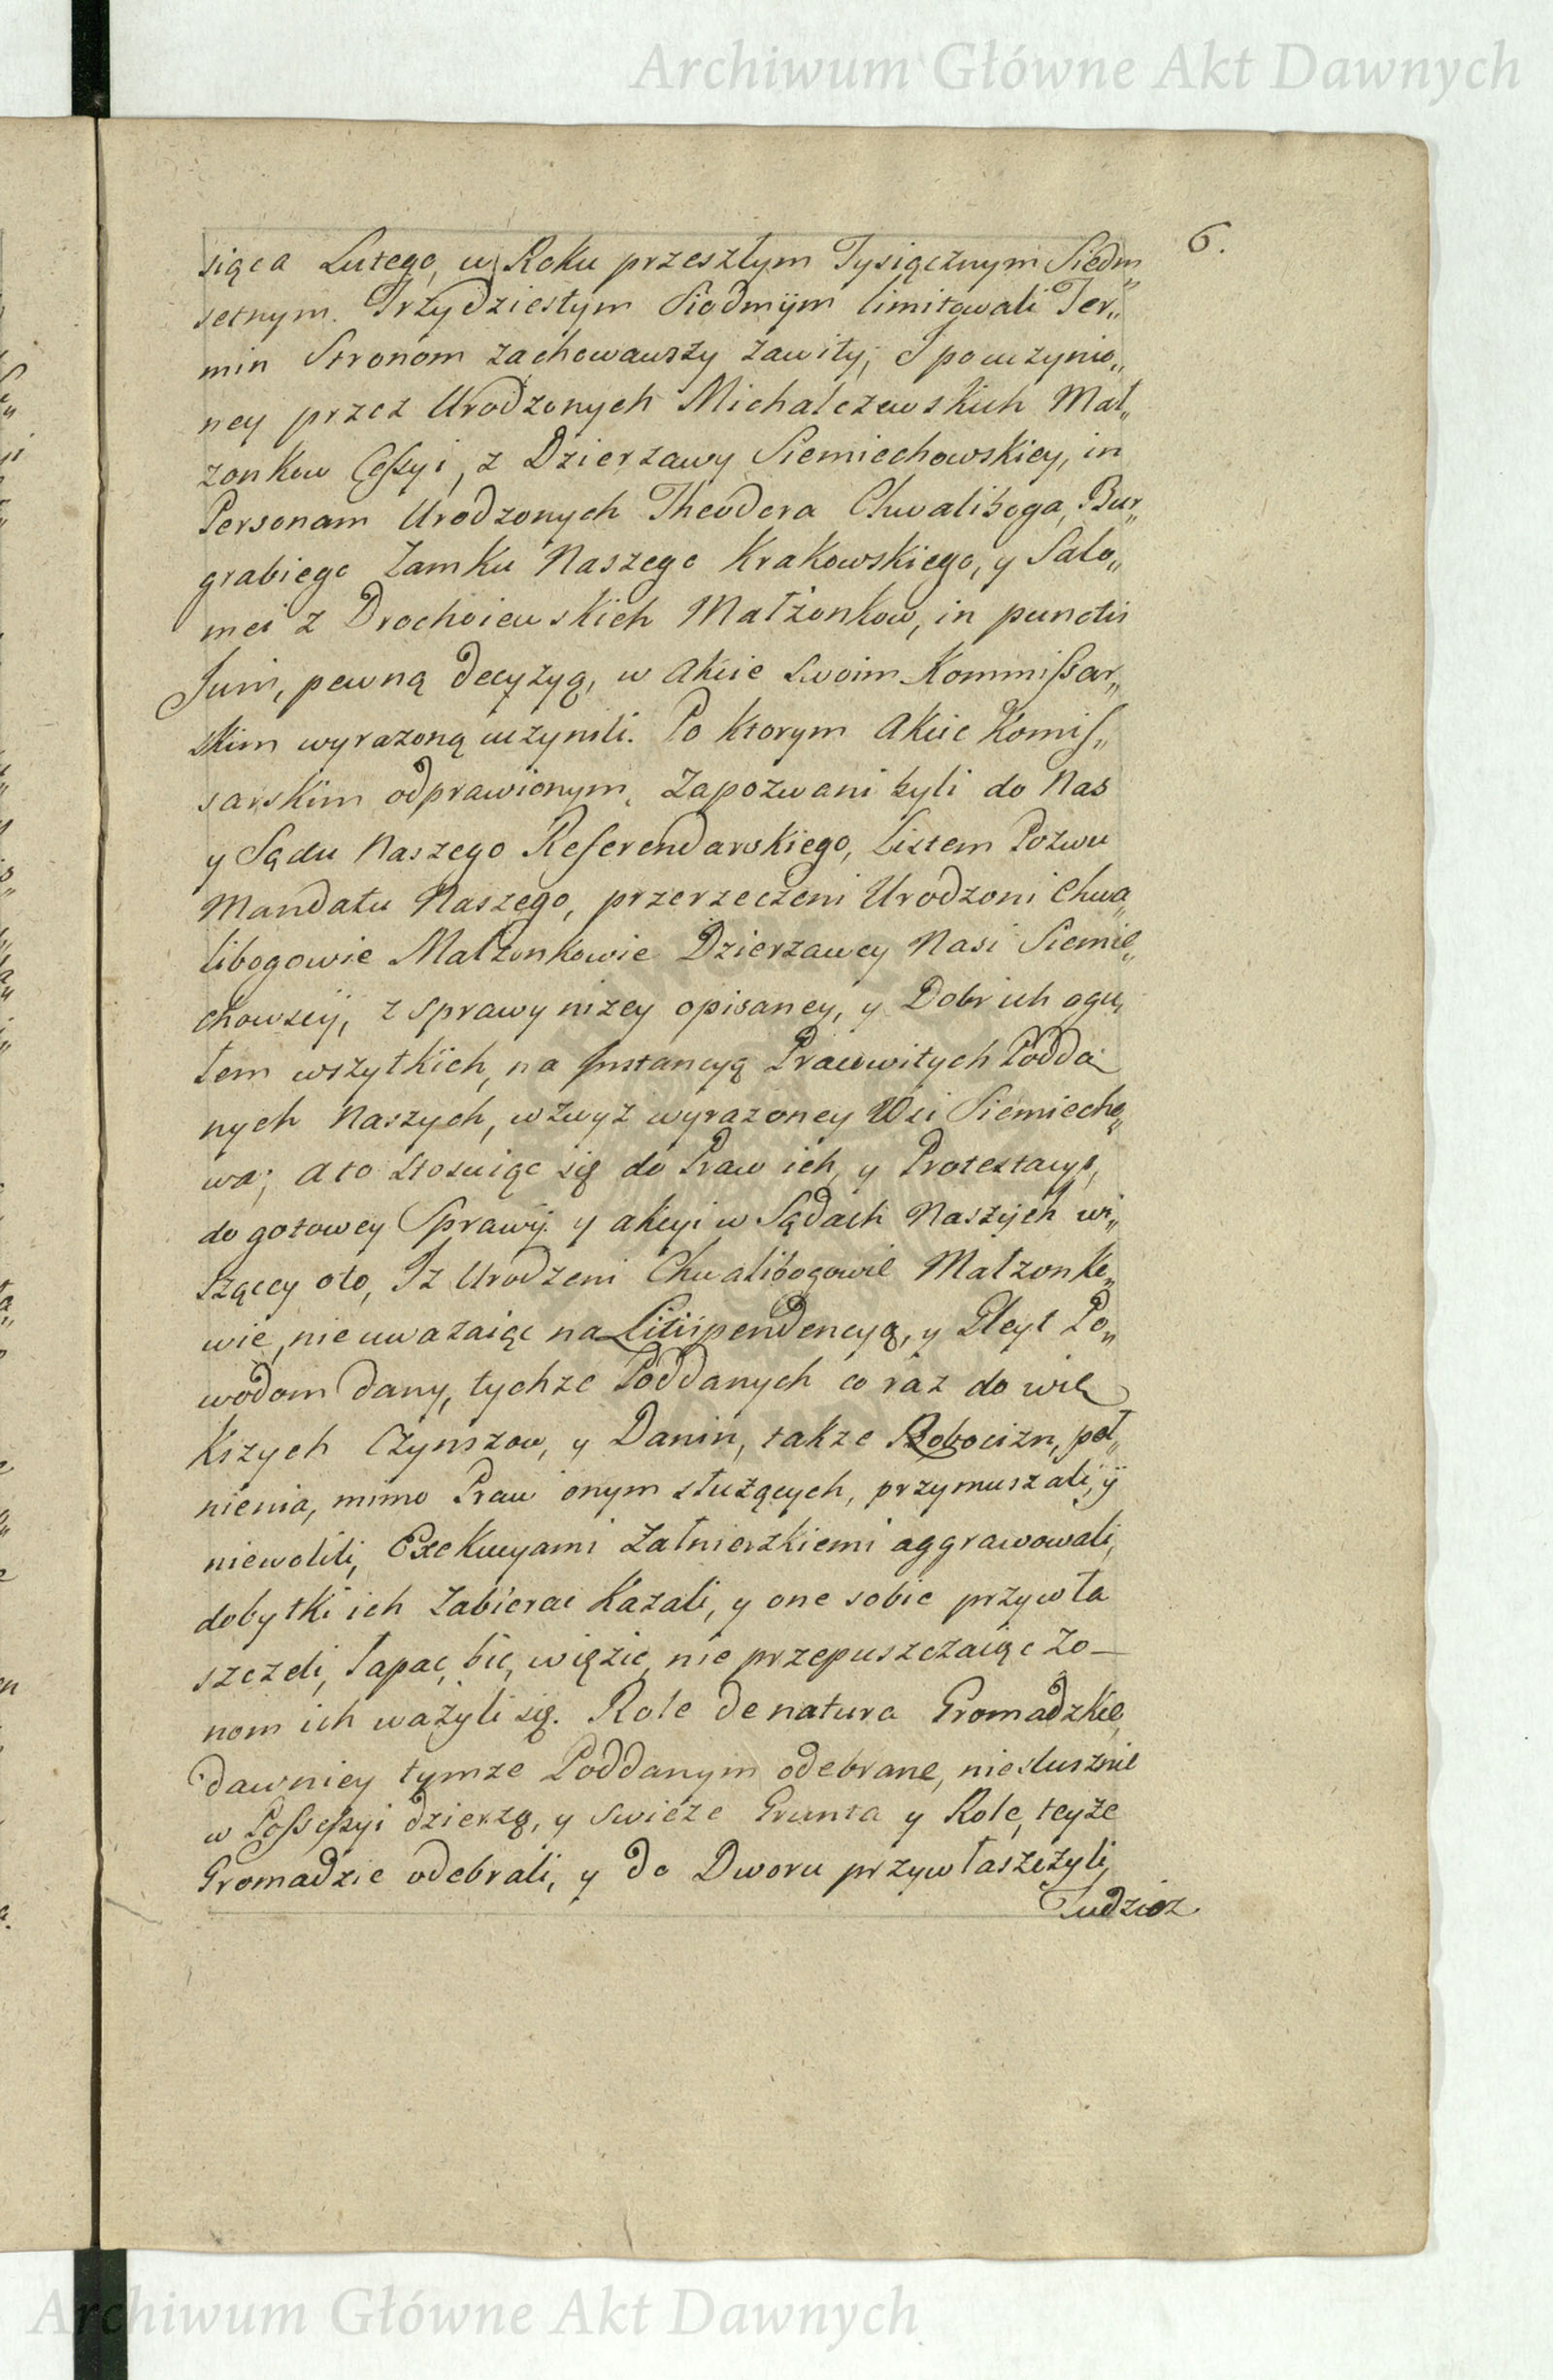 Archiwum Główne Akt Dawnych
6.
siąca Lutego, w Roku przeszłym Tysiącznym Siedm„
setnym. Trzydziestym Siodmÿm limitowali Ter„
min Stronom zachowawszy zawity, I po uczynio„
ney przez Urodzonych Michalczewskich Mał„
zonkow Cessyi, z Dzierzawy Siemiechowskiey, in
Personam Urodzonych Theodora Chwaliboga, Bur„
grabiego Zamku Naszego Krakowskiego, y Salo„
mei z Drochoiewskich Małżonkow, in punctis
Juris, pewną decyzyą, w akcie Swoim Kommissar„
skim wyrazoną uczynili. Po ktorym Akcie Komis„
sarskim odprawionym, Zapozwani byli do Nas
y Sądu Naszego Referendarskiego, Listem Pozwu
Mandatu Naszego, przerzeczeni Urodzoni Chwa„
libogowie Małzonkowie Dzierzawcy Nasi Siemie„
chowscÿ, z sprawy nizey opisaney, y Dobr ich ogu„
łem wszytkich, na Instancyą Pracowitych Podda
nych Naszych, wzwyż wyrazoney Wsi Siemiecho„
wa; a to stosuiąc się do Praw ich, y Protestacyi,
do gotowey Sprawÿ y akcyi w Sądach Naszÿch wi„
szącey oto, Iz Urodzeni Chwalibogowie Małzonko„
wie, nie uwazaiąc na Litispendencyą, y Gleyt Po„
wodom dany, tychze Poddanych co raz do wię
kszych Czynszow, y Danin, takze Robocizn, peł„
nienia, mimo Praw onym służących, przymuszali, ÿ
niewolili, Exekucyami Załnierzkiemi aggrawowali,
dobytki ich Zabierac kazali, y one sobie przywła
szczeli, łapac, bic, więzic, nie przepuszczaiąc Zo–
nom ich ważyli się. Role de natura Gromadzkie,
dawniey tymze Poddanym odebrane, niesłusznie
w Possessyi dzierzą, y swieze Grunta y Role, teyże
Gromadzie odebrali, y do Dworu przywłaszczyli,
Tudziez
Archiwum Główne Akt Dawnych